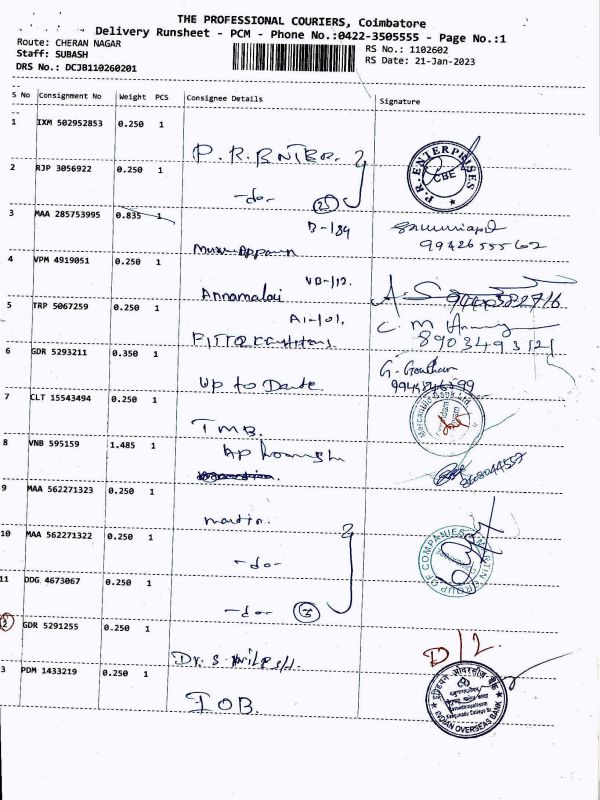 THE PROFESSIONAL COURIERS, Coimbatore
Delivery Runsheet - PCM - Phone No.:0422-3505555 - Page No.:1
Route: CHERAN NAGAR
RS No.: 1102602
Staff: SUBASH
RS Date: 21-Jan-2023
DRS No.: DCJB110260201
S No Consignment No Weight PCS Consignee Details Signature
1 IXM 502952853 0.250 1
P.R. ENTER.
P.R. ENTERPRISES
CBE
2 RJP 3056922 0.250 1
-do- (2)
3 MAA 285753995 0.835 1
B-184
99426555602
4 VPM 4919051 0.250 1
VB-112.
Annamalai
5 TRP 5067259 0.250 1
A1-101.
C. M
8903493121
6 GDR 5293211 0.350 1
Up to Date
G. Gowtham
7 CLT 15543494 0.250 1
TMB.
Mercantile Bank Ltd
8 VNB 595159 1.485 1
9 MAA 562271323 0.250 1
martin.
10 MAA 562271322 0.250 1
-do-
MARTIN GROUP OF COMPANIES
11 DDG 4673067 0.250 1
-do- (3)
2 GDR 5291255 0.250 1
Dr. S.
D/2
3 PDM 1433219 0.250 1
IOB.
इंडियन ओवरसीज़ बैंक
INDIAN OVERSEAS BANK